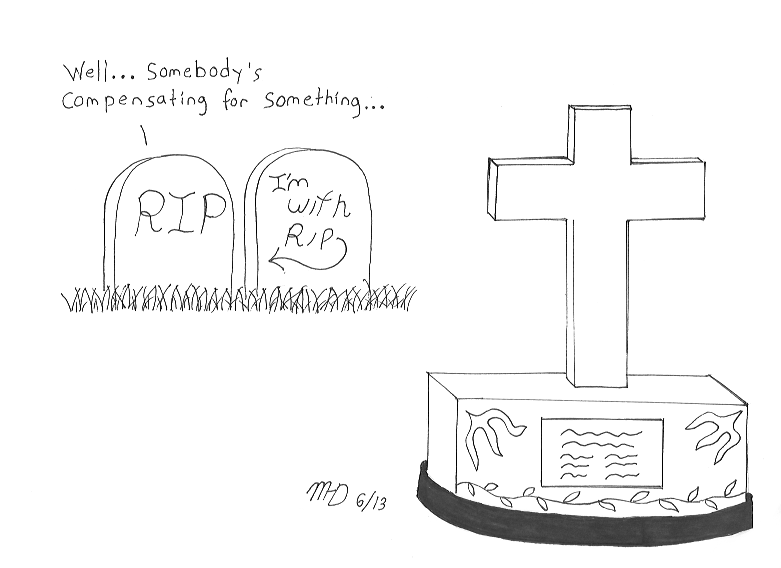 Well... Somebody's
Compensating for Something...
RIP
I'm
with
RIP
MHD 6/13